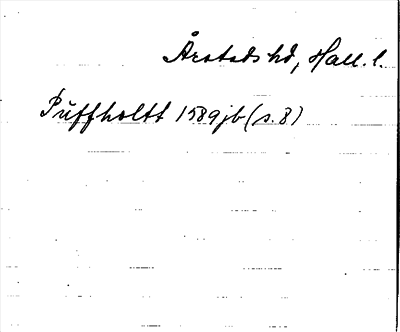 Årstads hd, Hall. l.
Puffholtt 1589 jb (s. 8)